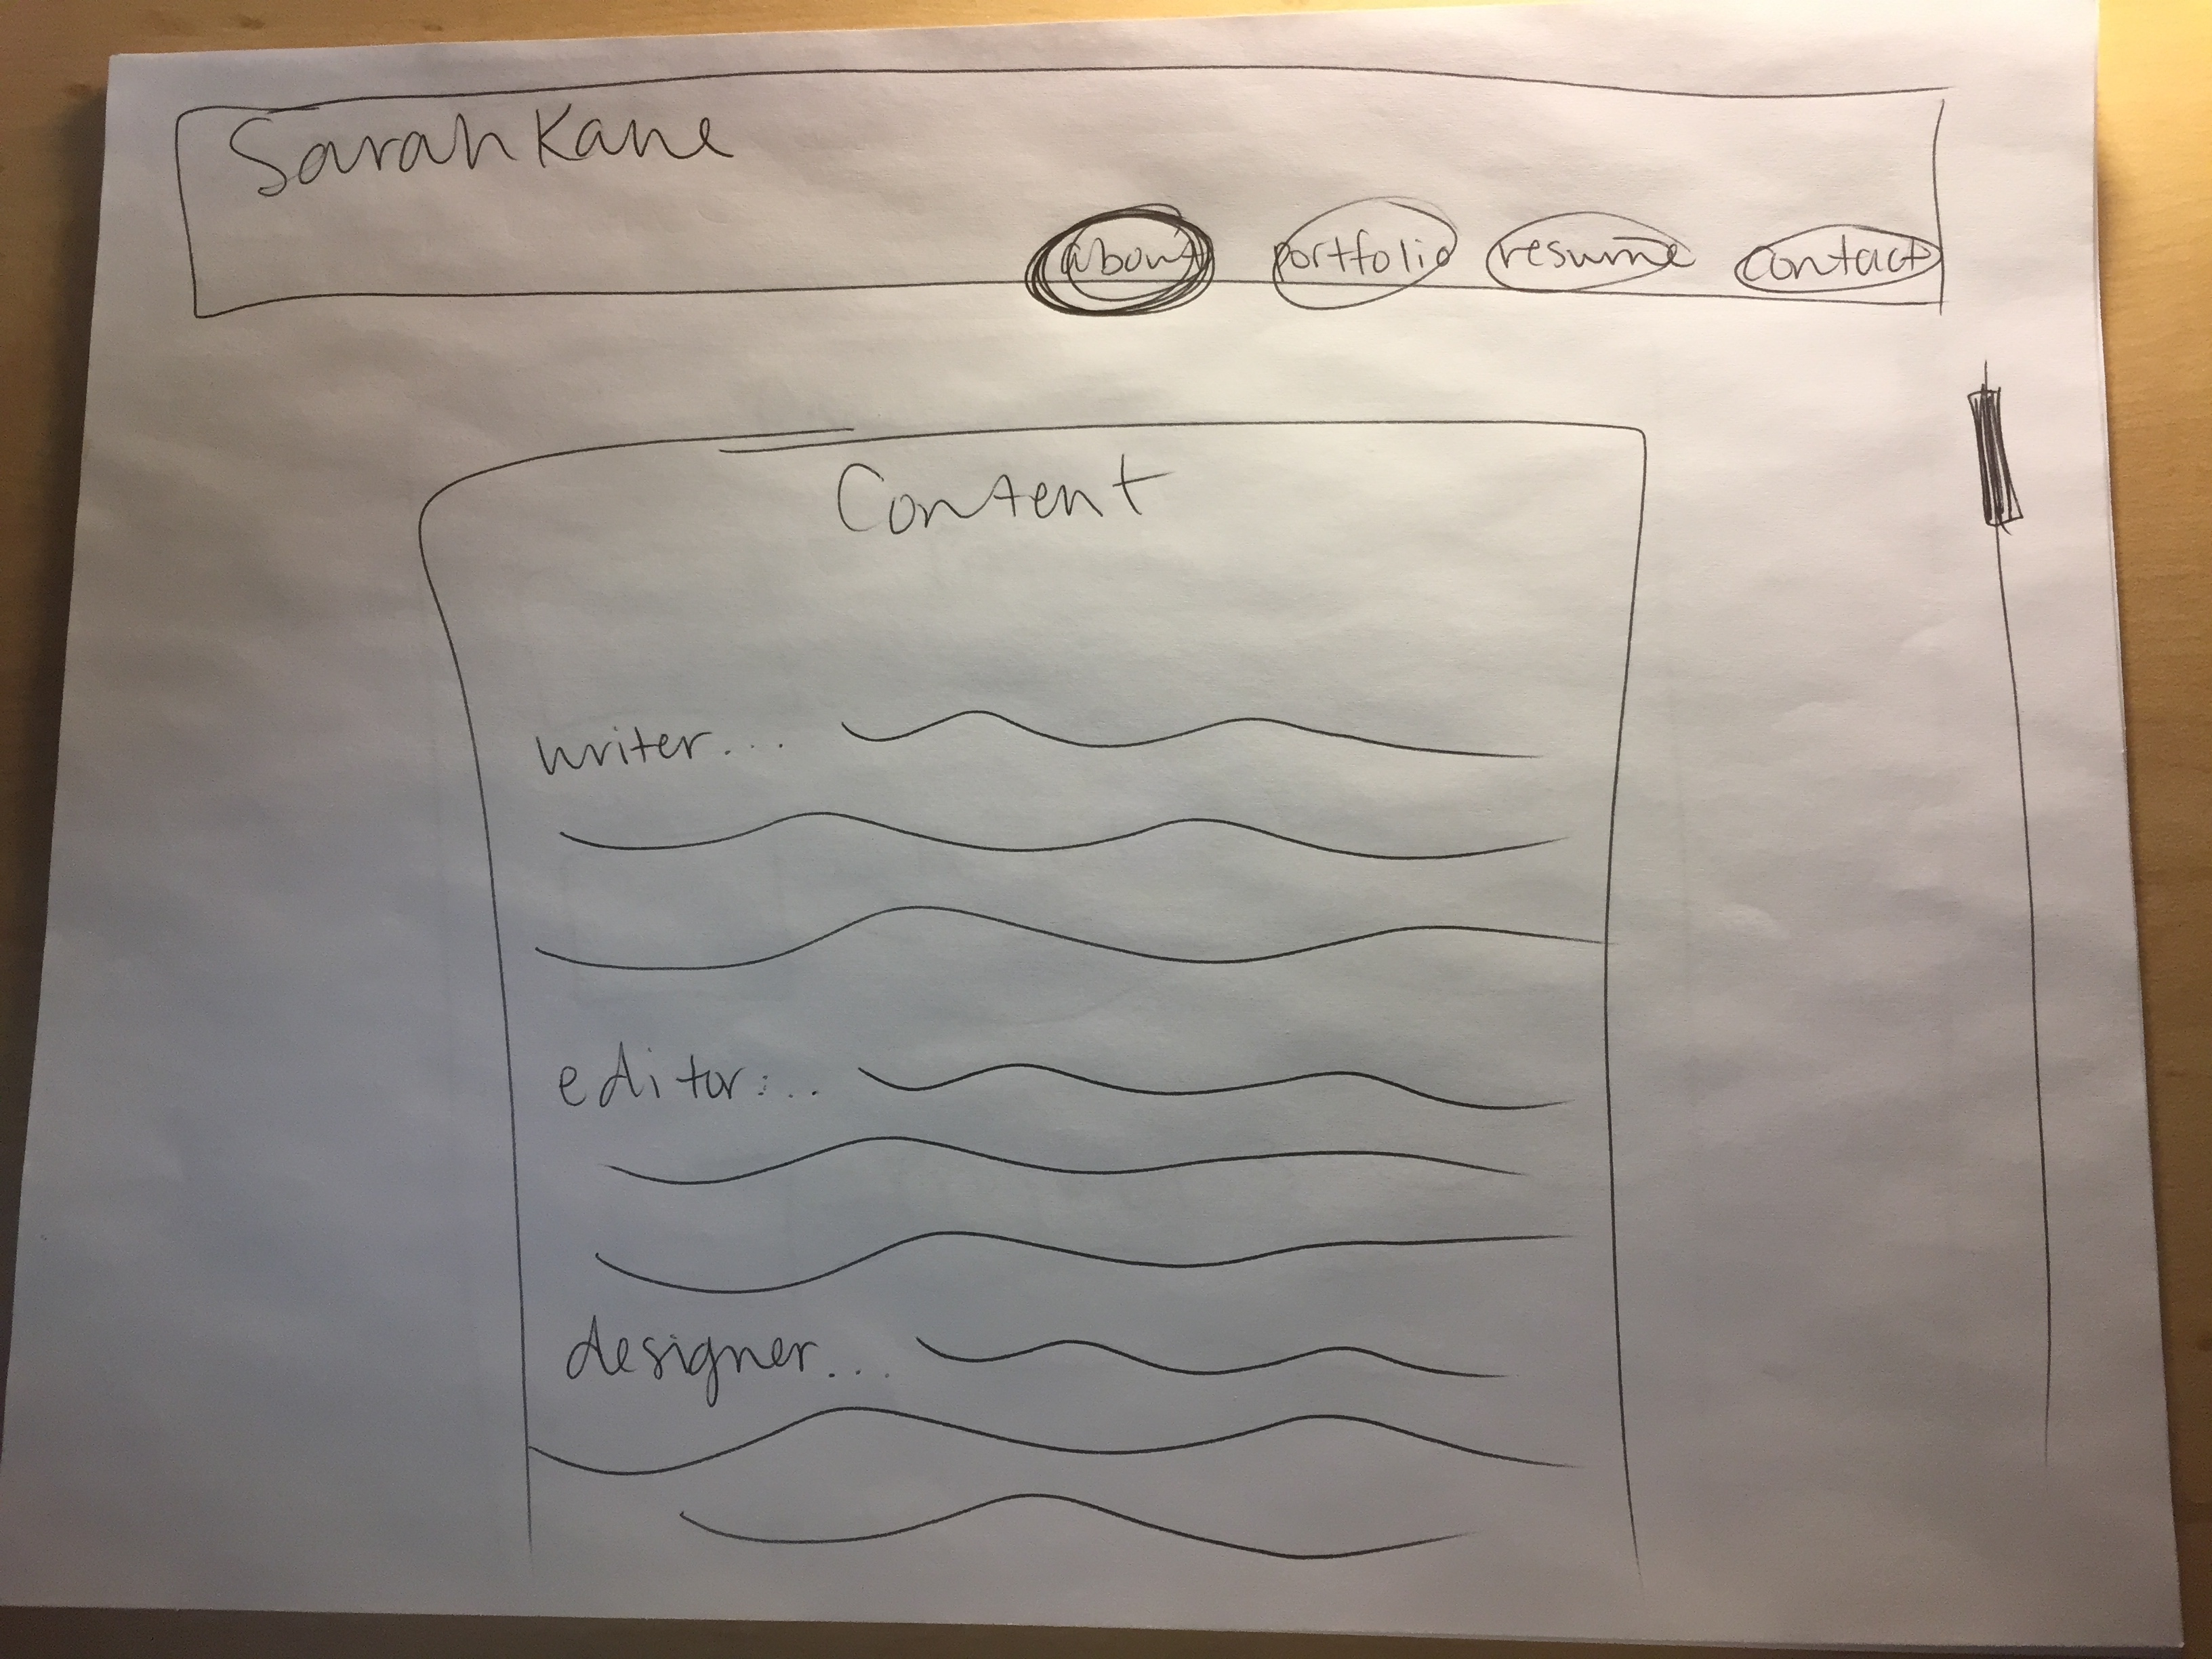 Sarah Kane
about portfolio resume contact
Content
writer...
editor:...
designer...